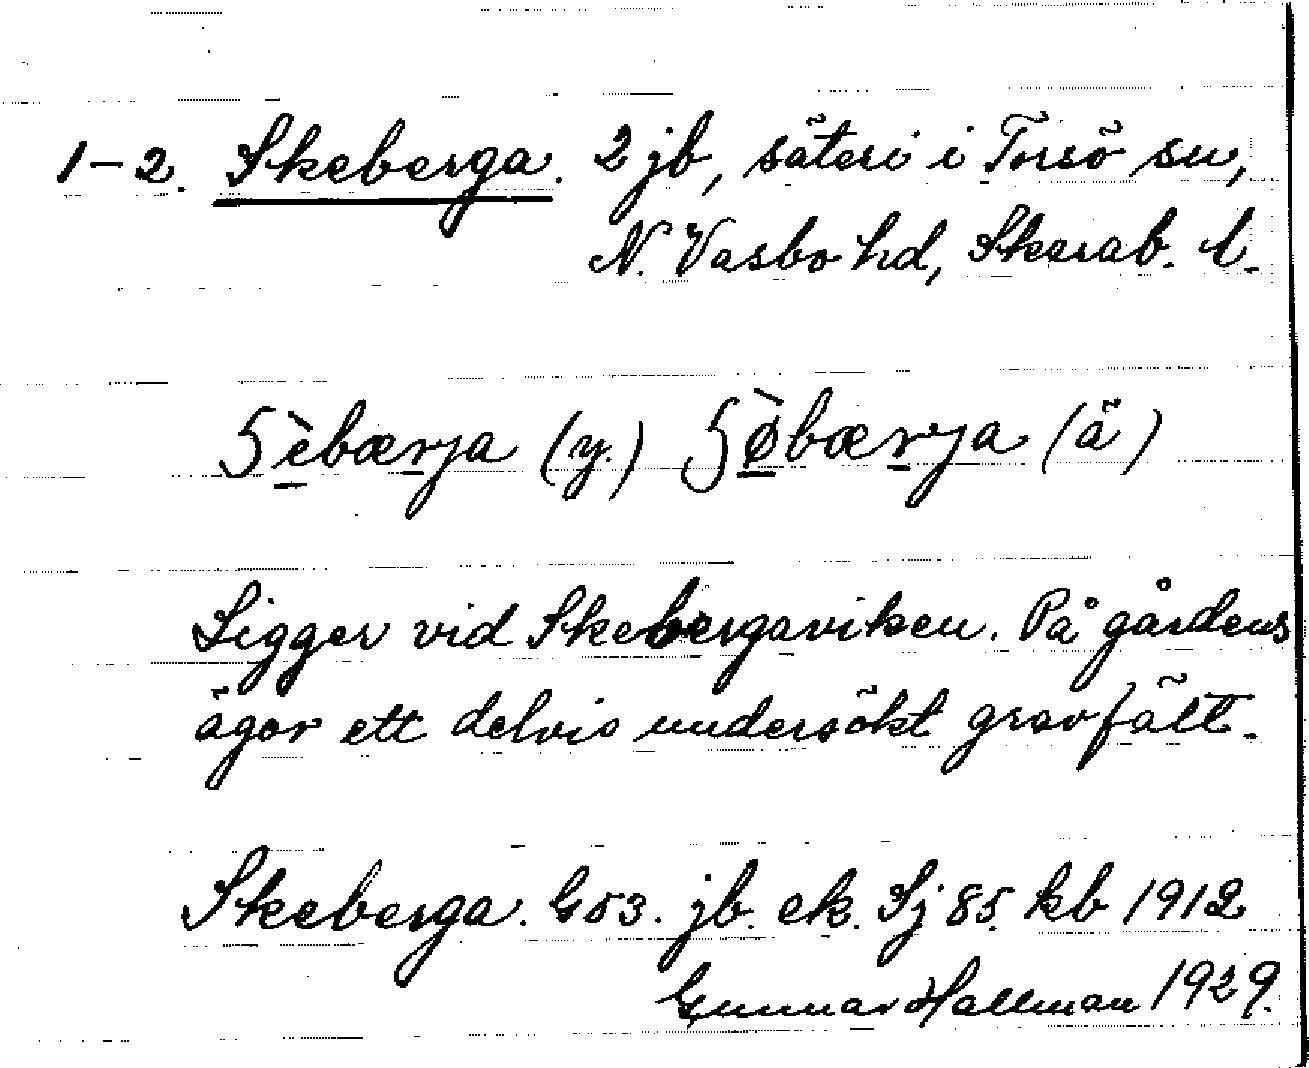 1-2. Skeberga. 2 jb, säteri i Torsö sn,
N. Vasbo hd, Skarab. l.
(y.) (ä)
Ligger vid Skebergaviken. På gårdens
ägor ett delvis undersökt gravfält.
Skeberga. G 53. jb. ek. Sj 85. kb 1912
Gunnar Hallman 1929.